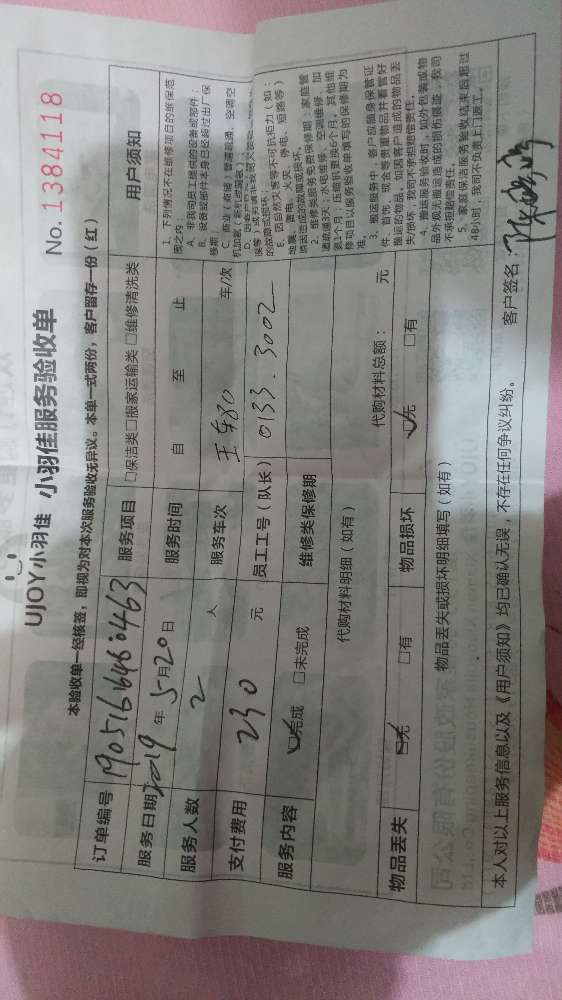 UJOY小羽佳 小羽佳服务验收单 No. 1384118
本验收单一经核签，即视为对本次服务验收无异议。本单一式两份，客户留存一份（红）
订单编号 190516646460463 服务项目 □保洁类 □搬家运输类 □维修清洗类
服务日期 2019 年 5 月 20 日 服务时间 自 至 止
服务人数 2 人 服务车次 车/次
支付费用 230 元 员工工号（队长） 0133.3002
服务内容 ☑完成 □未完成 维修类保修期
代购材料明细（如有） 代购材料总额： 元
物品丢失 ☑无 □有 物品损坏 ☑无 □有
物品丢失或损坏明细填写（如有）
用户须知
1. 下列情况不在维修项目的维保范
围之内：
A. 非我司员工提供的设备或部件；
B. 设备或部件本身已经超过出厂保
修期；
E. 因自然灾害等不可抗拒力（如：
地震、雷电、火灾、停电、短路等）
原因造成的故障或损坏。
2. 维修类服务免费保修期：家庭管
道疏通3天；水电维修、空调维修、加
氨1个月；压缩机更换6个月，其他维
修项目以服务验收单填写的保修期为
准。
3. 搬运服务中，客户应随身保管证
件、首饰、现金等贵重物品并看管好
搬运的物品，如因客户造成的物品丢
失/损坏，我司不承担赔偿责任。
4. 搬运服务验收时，如外包装或物
品外观无搬运造成的损伤痕迹，我司
不承担赔偿责任。
5. 家庭保洁服务验收结束后超过
48小时，我司不负责上门返工。
本人对以上服务信息以及《用户须知》均已确认无误，不存在任何争议纠纷。 客户签名：